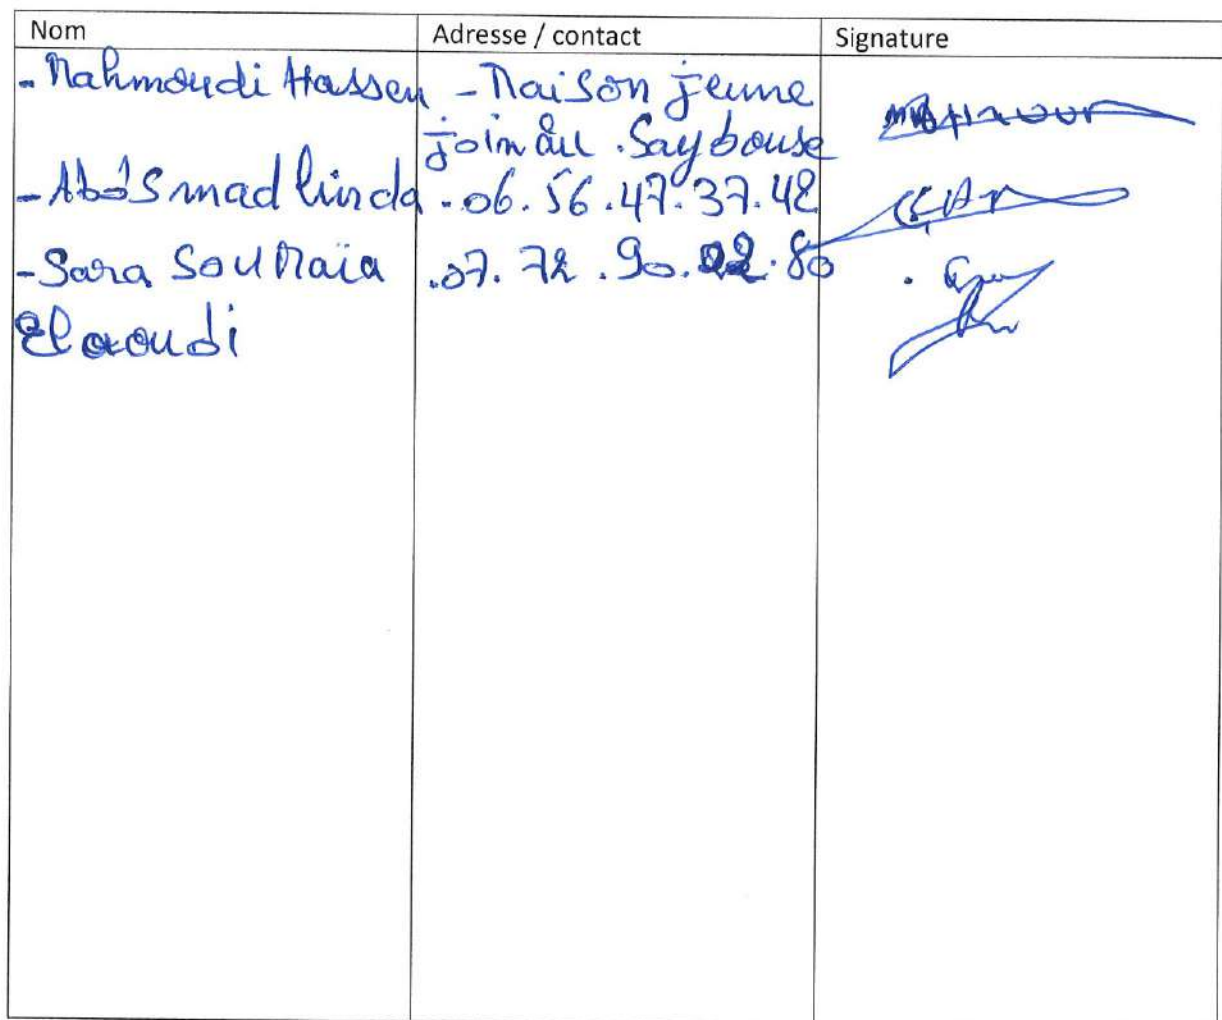 Nom Adresse / contact Signature
- Mahmoudi Hassen - Maison jeune
join âu . Saybouse
- AbdSmad linda - . 06. 56 .47. 37. 42
- Sara SouMaïa .07. 72 . 90. 02 . 80
Elaoudi